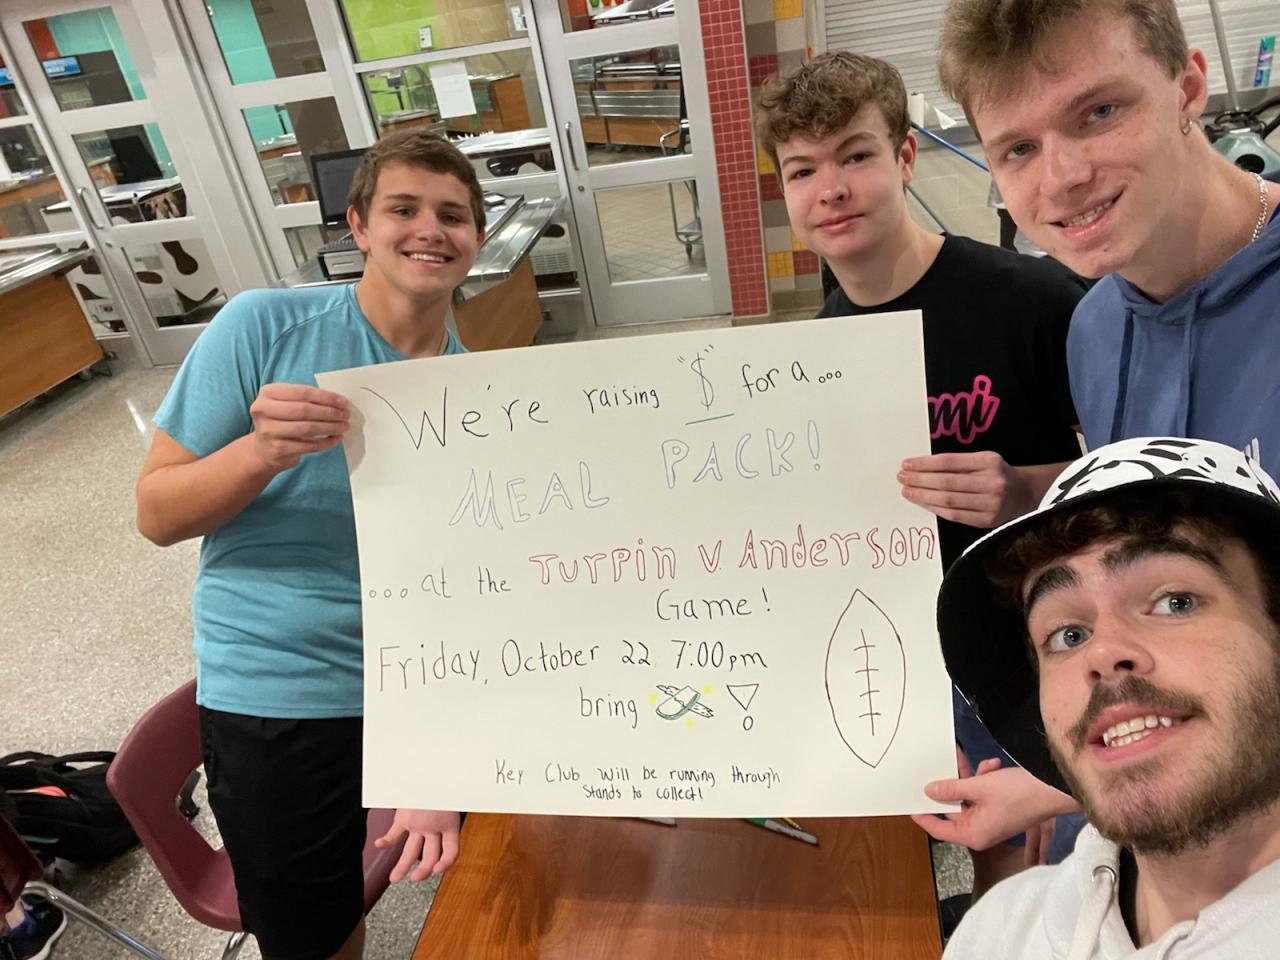 We're raising "$" for a...
MEAL PACK!
...at the Turpin v. Anderson
Game!
Friday, October 22 7:00pm
bring
Key Club will be running through
Stands to collect!
mi